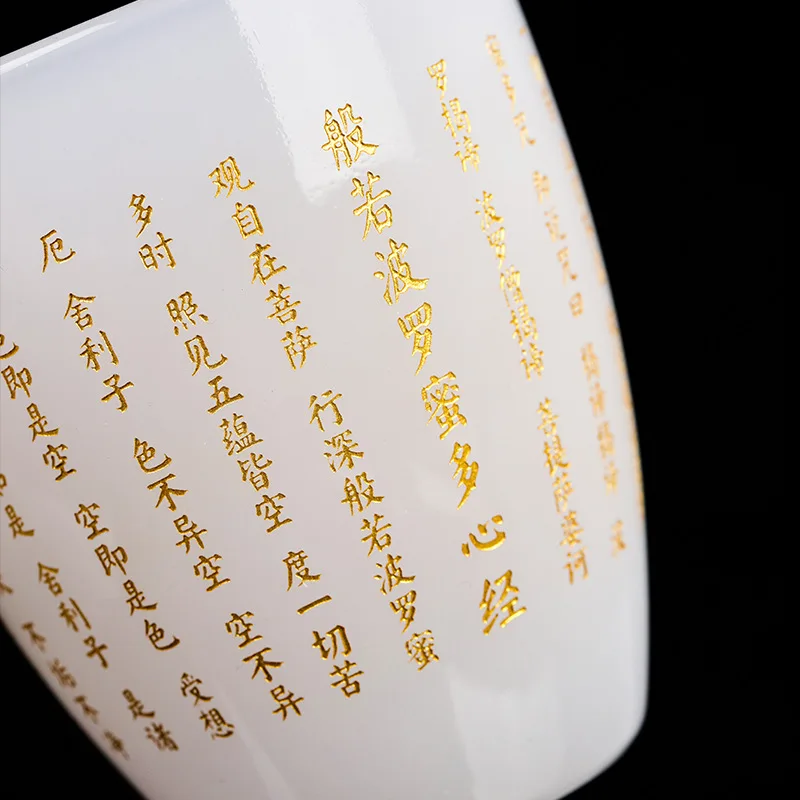 蜜多咒 即说咒曰 揭谛揭谛 波
罗揭谛 波罗僧揭谛 菩提萨婆诃
般若波罗蜜多心经
观自在菩萨 行深般若波罗蜜
多时 照见五蕴皆空 度一切苦
厄 舍利子 色不异空 空不异
色即是空 空即是色 受想
是 舍利子 是诸
不垢不净